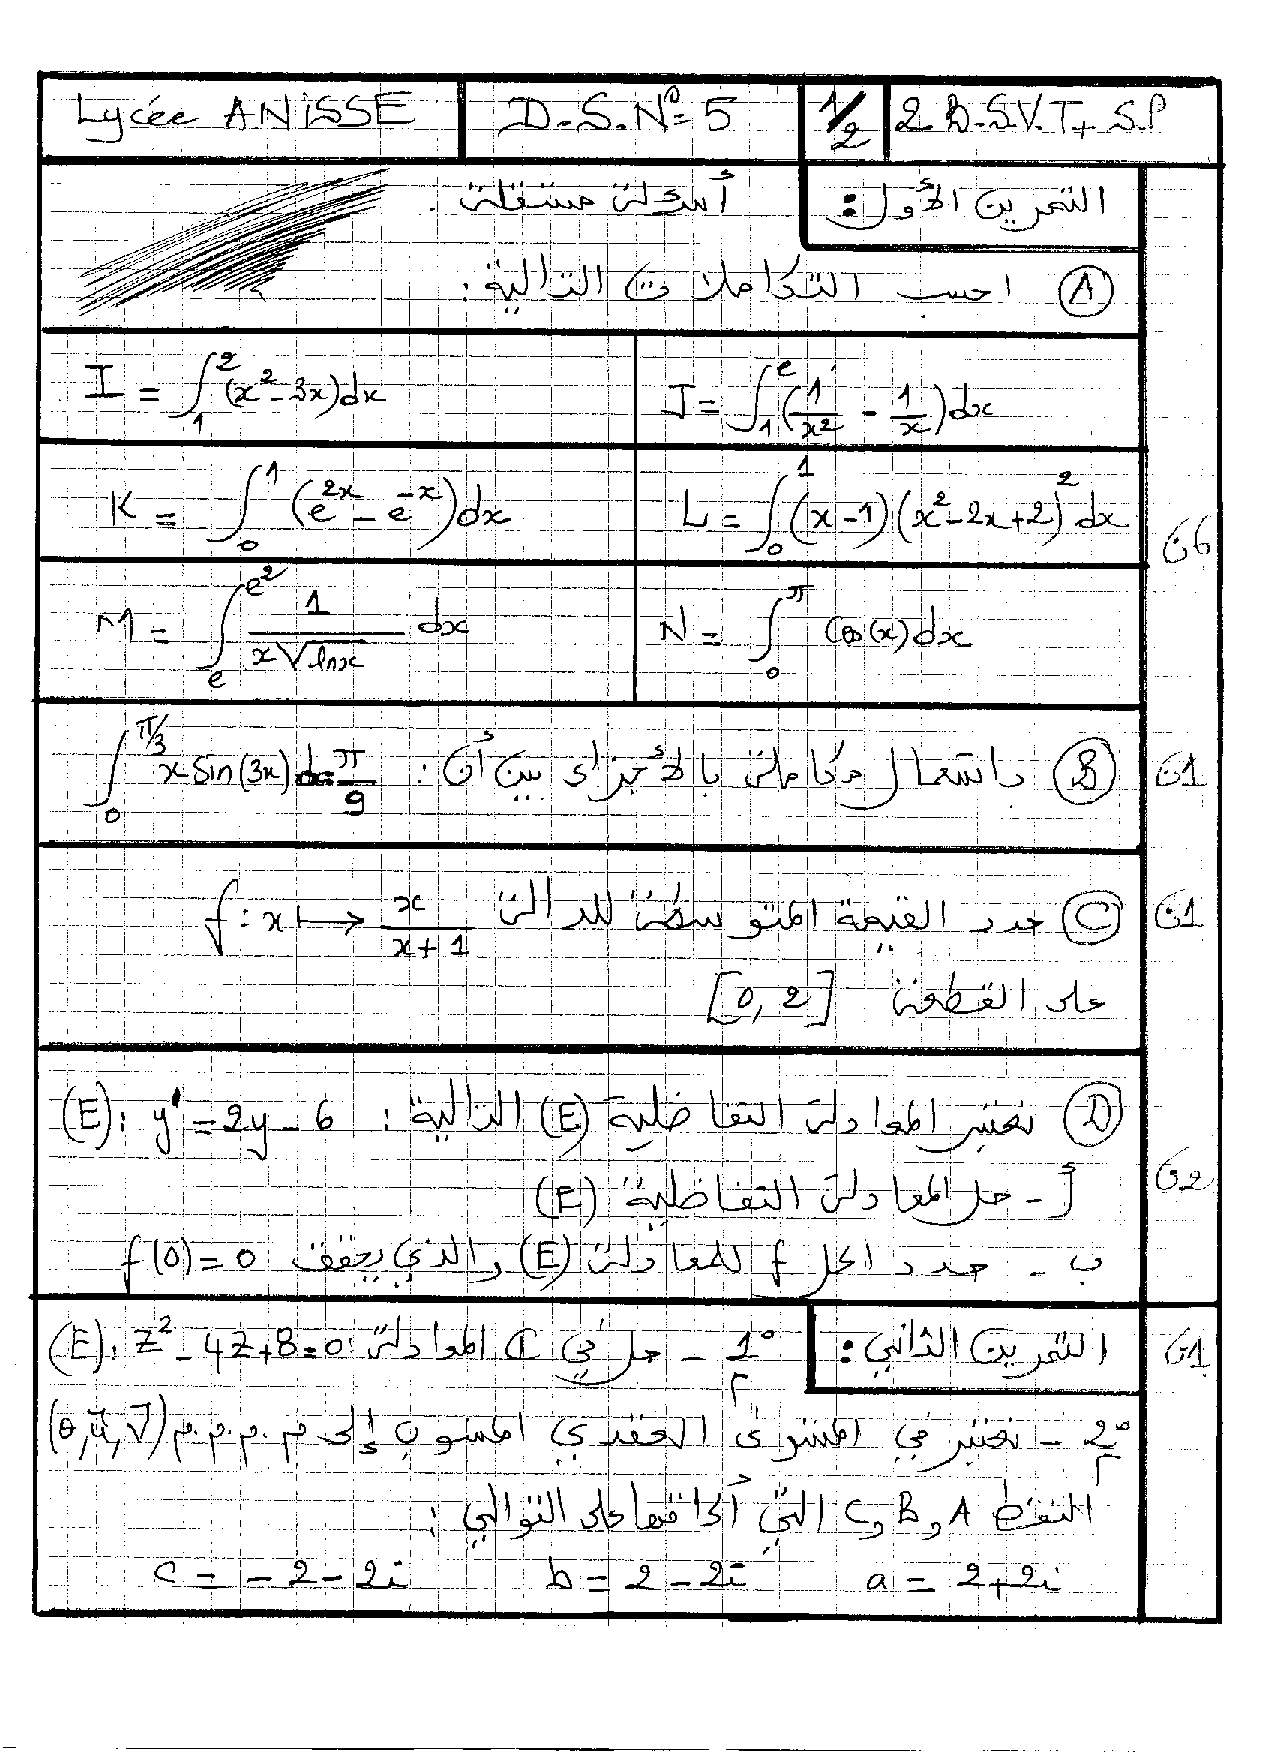 Lycée ANISSE D.S.N°=5 1/2 2.B.SV.T+S.P
التمرين الأول: أسئلة مستقلة.
(A) احسب التكاملات التالية:
I = ∫₁² (x² - 3x)dx J = ∫₁ᵉ (1/x² - 1/x)dx
K = ∫₀¹ (e^{2x} - e^{-x})dx L = ∫₀¹ (x-1)(x²-2x+2)² dx
6ن
M = ∫_e^{e²} 1/(x√lnx) dx N = ∫₀^π Cos(x)dx
(B) باستعمال مكاملة بالأجزاء بين أن: ∫₀^{π/3} x sin(3x)dx = π/9 1ن
(C) حدد القيمة المتوسطة للدالة f: x ↦ x/(x+1) 1ن
على القطعة [0,2]
(D) نعتبر المعادلة التفاضلية (E) التالية: (E): y' = 2y - 6
أ - حل المعادلة التفاضلية (E) 2ن
ب - حدد الحل f للمعادلة (E) والذي يحقق f(0)=0
التمرين الثاني: 1° - حل في ℂ المعادلة (E): z² - 4z + 8 = 0 1ن
2° - نعتبر في المستوى العقدي المنسوب إلى م.م.م.م (o,u⃗,v⃗)
النقط A و B و C التي ألحاقها على التوالي:
a = 2+2i b = 2-2i c = -2-2i